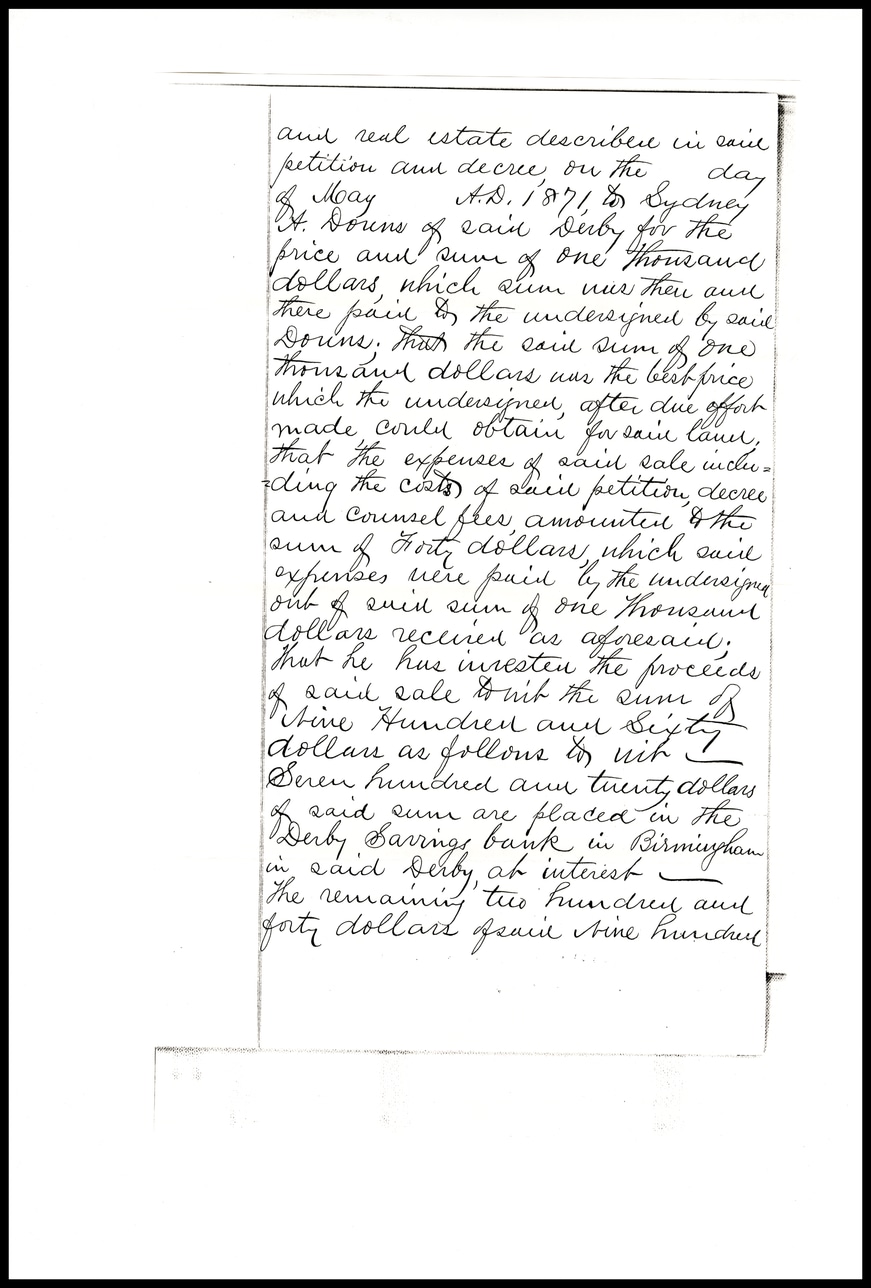 and real estate described in said
petition and decree, on the day
of May A.D. 1871, to Sydney
A. Downs of said Derby for the
price and sum of one thousand
dollars, which sum was then and
there paid to the undersigned by said
Downs; that the said sum of one
thousand dollars was the best price
which the undersigned, after due effort
made, could obtain for said land;
that the expenses of said sale inclu=
=ding the costs of said petition, decree
and counsel fees, amounted to the
sum of Forty dollars, which said
expenses were paid by the undersigned
out of said sum of one thousand
dollars received as aforesaid;
that he has invested the proceeds
of said sale to wit the sum of
Nine Hundred and Sixty
dollars as follows to wit —
Seven hundred and twenty dollars
of said sum are placed in the
Derby Savings bank in Birmingham
in said Derby, at interest —
The remaining two hundred and
forty dollars of said Nine hundred